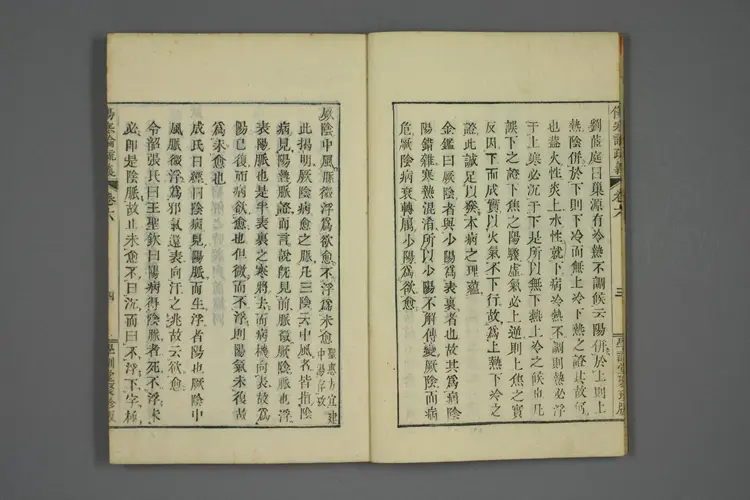 劉茝庭曰巢源有冷熱不調候云陽併於上則上
熱陰併於下則下冷而無上冷下熱之證其故何
也蓋火性炎上水性就下病冷熱不調則熱必浮
于上寒必沉于下是所以無下熱上冷之候也凡
誤下之證下焦之陽驟虛氣必上逆則上焦之實
反因下而成實以火氣不下行故爲上熱下冷之
證此誠足以發本病之理蘊
金鑑曰厥陰者與少陽爲表裏者也故其爲病陰
陽錯雜寒熱混淆所以少陽不解傳變厥陰而病
危厥陰病衰轉屬少陽爲欲愈
傷寒論疏義
卷六
三
厥陰中風脈微浮爲欲愈不浮爲未愈
此揭明厥陰病愈之脈凡三陰云中風者皆指陰
病見陽熱脈證而言說既見前脈微厥陰脈也浮
表陽脈也是半表裏之寒將去而病機向表故爲
傷已復而病欲愈也但微而不浮則陽氣未復故
爲未愈也
成氏曰經曰陰病見陽脈而生浮者陽也厥陰中
風脈微浮爲邪氣還表向汗之兆故云欲愈
令韶張氏曰王聖欽曰陽病得陰脈者死不浮未
必即是陰脈故止未愈不曰沉而曰不浮下字極
傷寒論疏義
卷六
四
學訓堂聚珍版